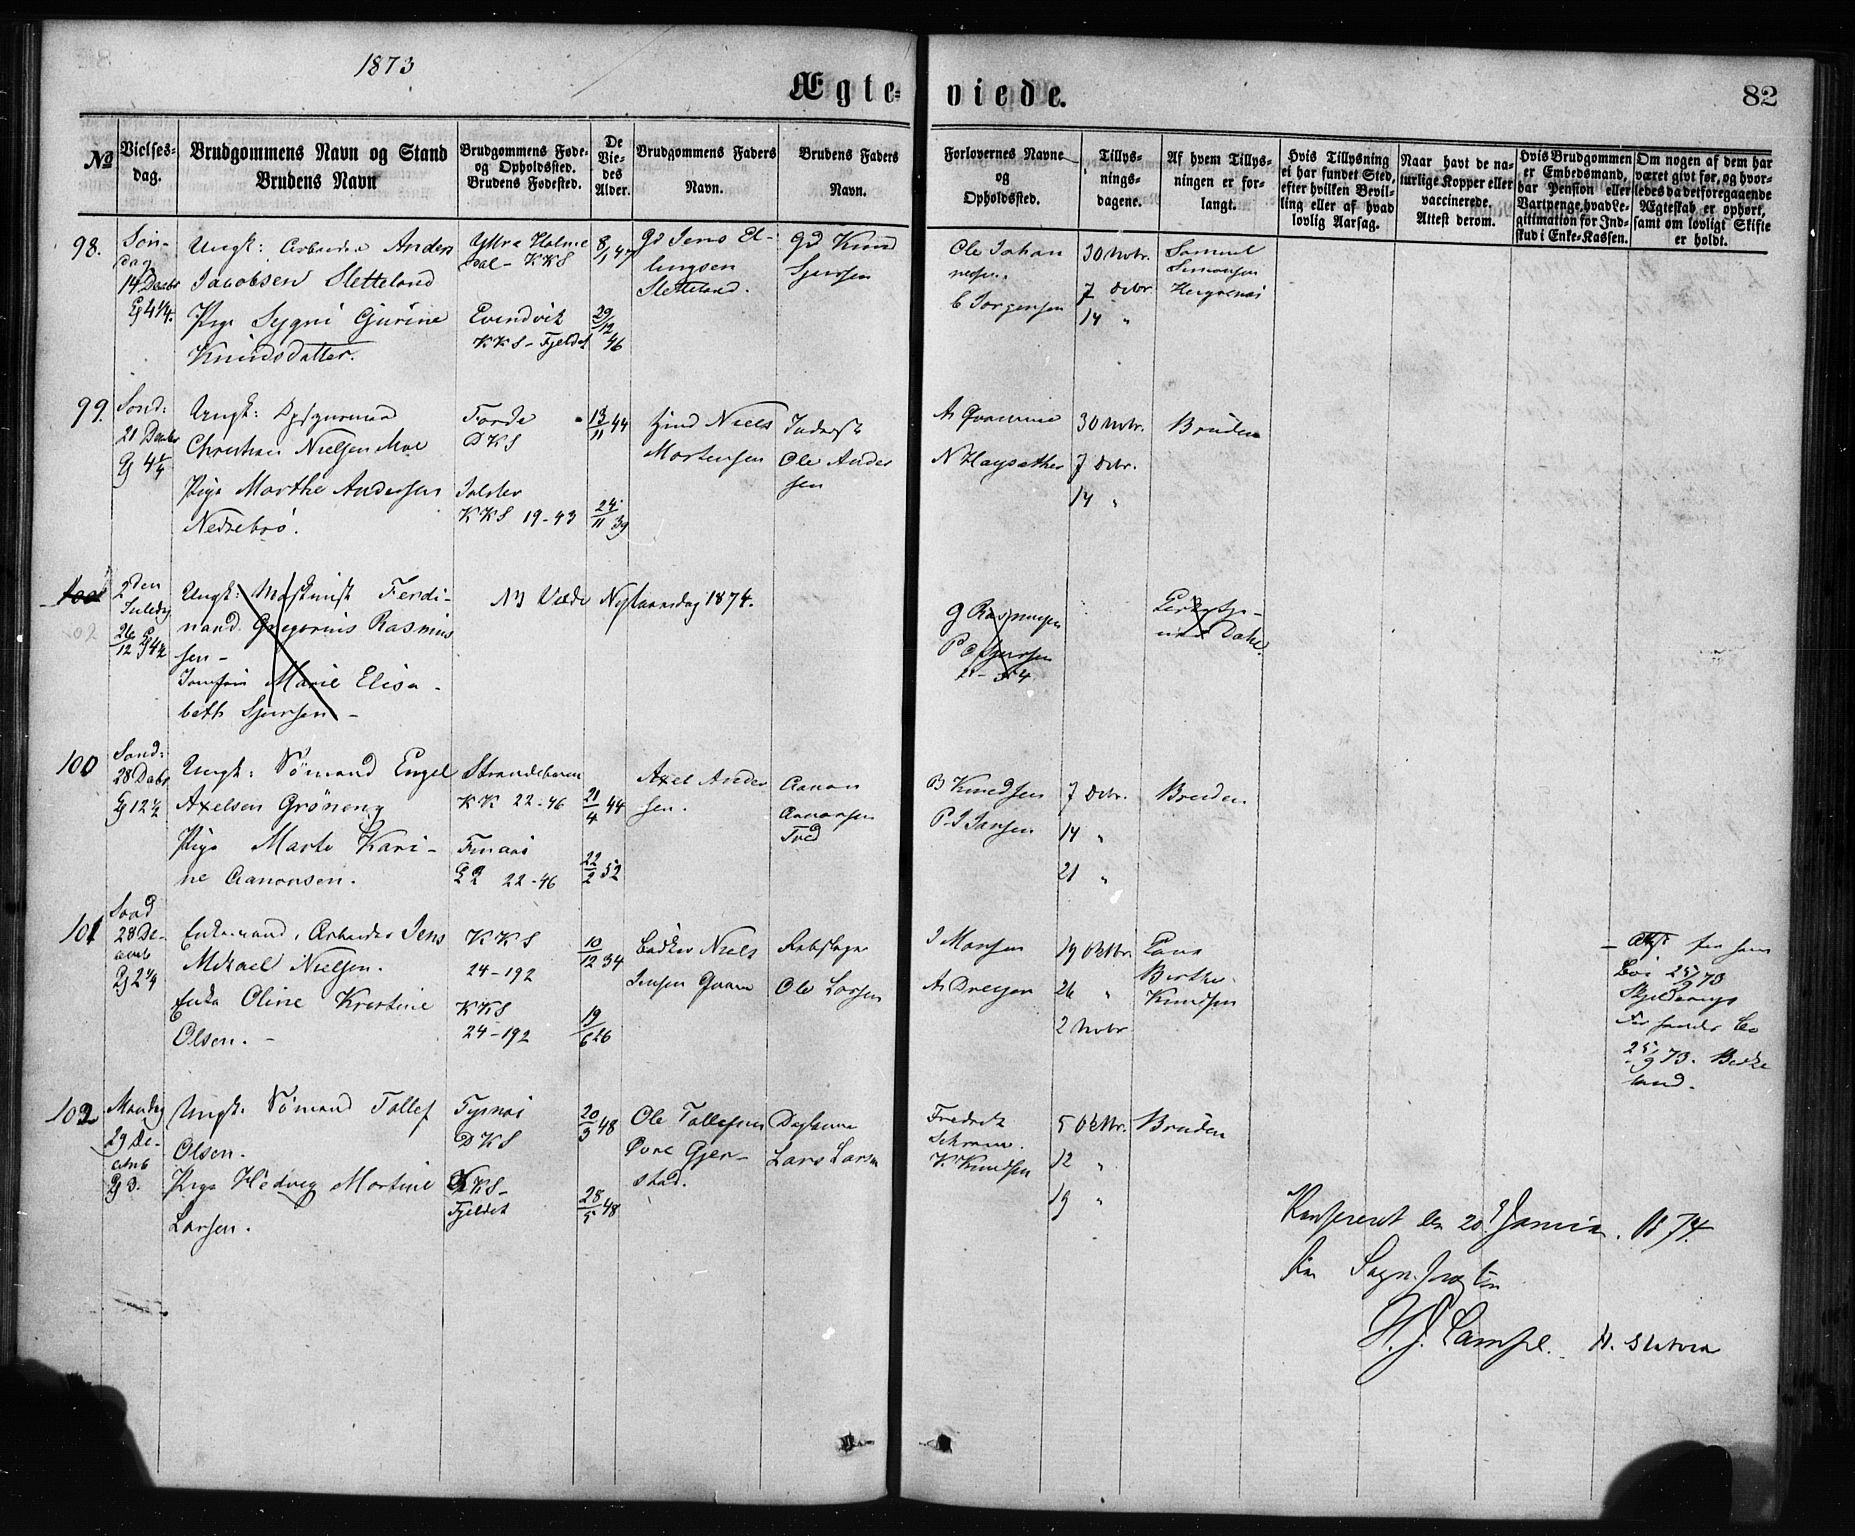 1873
Ægte- viede.
82
No
Vielses-
dag.
Brudgommens Navn og Stand
Brudens Navn
Brudgommens Føde-
og Opholdssted.
Brudens Fødested.
De
Vie-
des
Alder.
Brudgommens Faders
Navn.
Brudens Faders
Navn.
Forlovernes Navne
og
Opholdssted.
Tillys-
nings-
dagene.
Af hvem Tillys-
ningen er for-
langt.
Hvis Tillysning
ei har fundet Sted,
efter hvilken Bevil-
ling eller af hvad
lovlig Aarsag.
Naar havt de na-
turlige Kopper eller
vaccinerede.
Attest derom.
Hvis Brudgommen
er Embedsmand,
har Pension eller
Vartpenge, hvad Le-
gitimation for Ind-
skud i Enke-Kassen.
Om nogen af dem har
været givt før, og hvor-
ledes da det foregaaende
Ægteskab er ophørt,
samt om lovligt Skifte
er holdt.
98.
Søn-
dag
14 Decbr
Ungk: Arbeider Anders
Jacobsen Sletteland
Pige Sygni Gurine
Knudsdatter.
Yttre Holme
dal - KKS
Evindvik
KKS - Fjeldet
8/1 47
29/12 46
Gd Jens El-
lingsen
Sletteland.
Gd Knud
Sjursen
Ole Johan
nesen.
C Jørgensen
30 Novbr.
7 Decbr
14 "
Samuel
Simonsen
99.
Sønd:
21 Decbr
Ungk:
Christian Nielsen Moe
Pige Marthe Andersen
Nedrebø.
Førde
DKS
Jølster
KKS 19-43
13/11 44
24/11 39
Niels
Mortensen
Ole Ander
sen
30 Novbr.
7 Decbr.
14 "
Bruden
100
2den
Juledag
26/12
Ungk: Maskinist Ferdi-
nand Gregorius Rasmus
sen -
Jomfru Marie Elisa-
beth Sjursen -
NB Viede Nytaarsdag 1874.
G Rasmussen
P C Sjursen
100
Sønd:
28 Decbr
Kl 12 1/2
Ungk: Sømand Engel
Axelsen Grøneng
Pige Marte Kari-
ne Aanonsen.
Strandebarm
KK 22-46
Finaas
22-46
21/4 44
22/2 52
Axel Ander
sen.
Aanon
Aanonsen
B Knudsen
P. J Jansen
7 Decbr.
14 "
21 "
Bruden
101
28 De-
cemb
Enkemand, Arbeider Jens
Mikael Nielsen.
Enke Oline Kristine
Olsen. -
KKS
24-192
KKS
24-192
10/12 34
19/6 26
Bødker Niels
Jensen
Rebslager
Ole Larsen
J Monsen
A Dreyer
19 Oktbr.
26 "
2 Novbr
Berthe
Knudsen
Attest for hans
Bo 25/9 73
Skjelderup
For hendes Bo
25/9 73.
102
Mandag
29 De-
cemb
Kl 3.
Ungk. Sømand Tollef
Olsen.
Pige Hedvig Martine
Larsen.
Tysnæs
DKS
KKS -
Fjeldet
20/3 48
28/5 48
Ole Tollefsen
Øvre Gjer-
stad.
Lars Larsen
Fredrik
Schram.
K. Knudsen
5 Oktbr.
12 "
19 "
Bruden
Konfereret den 20 Januar 1874.
For Sogn
H. J. Lampe.